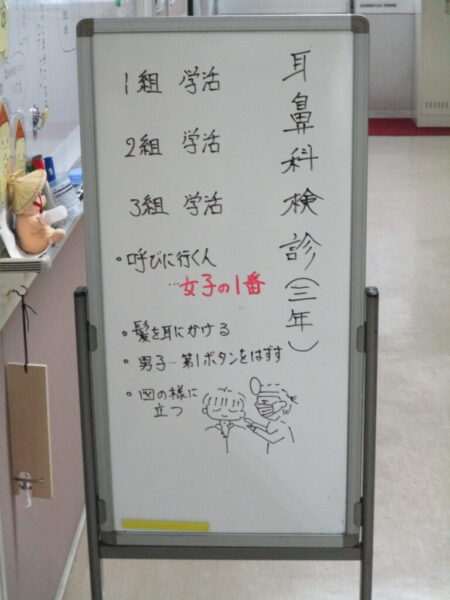 耳鼻科検診(三年)
1組 学活
2組 学活
3組 学活
・呼びに行く人
…女子の1番
・髪を耳にかける
・男子…第1ボタンをはずす
・図の様に
立つ